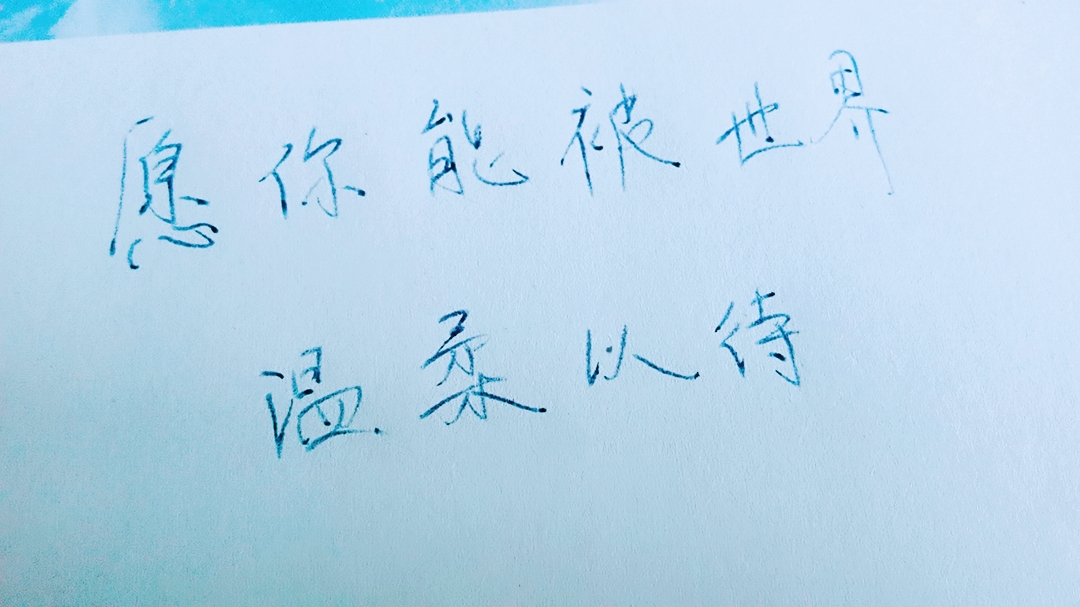 愿你能被世界
温柔以待